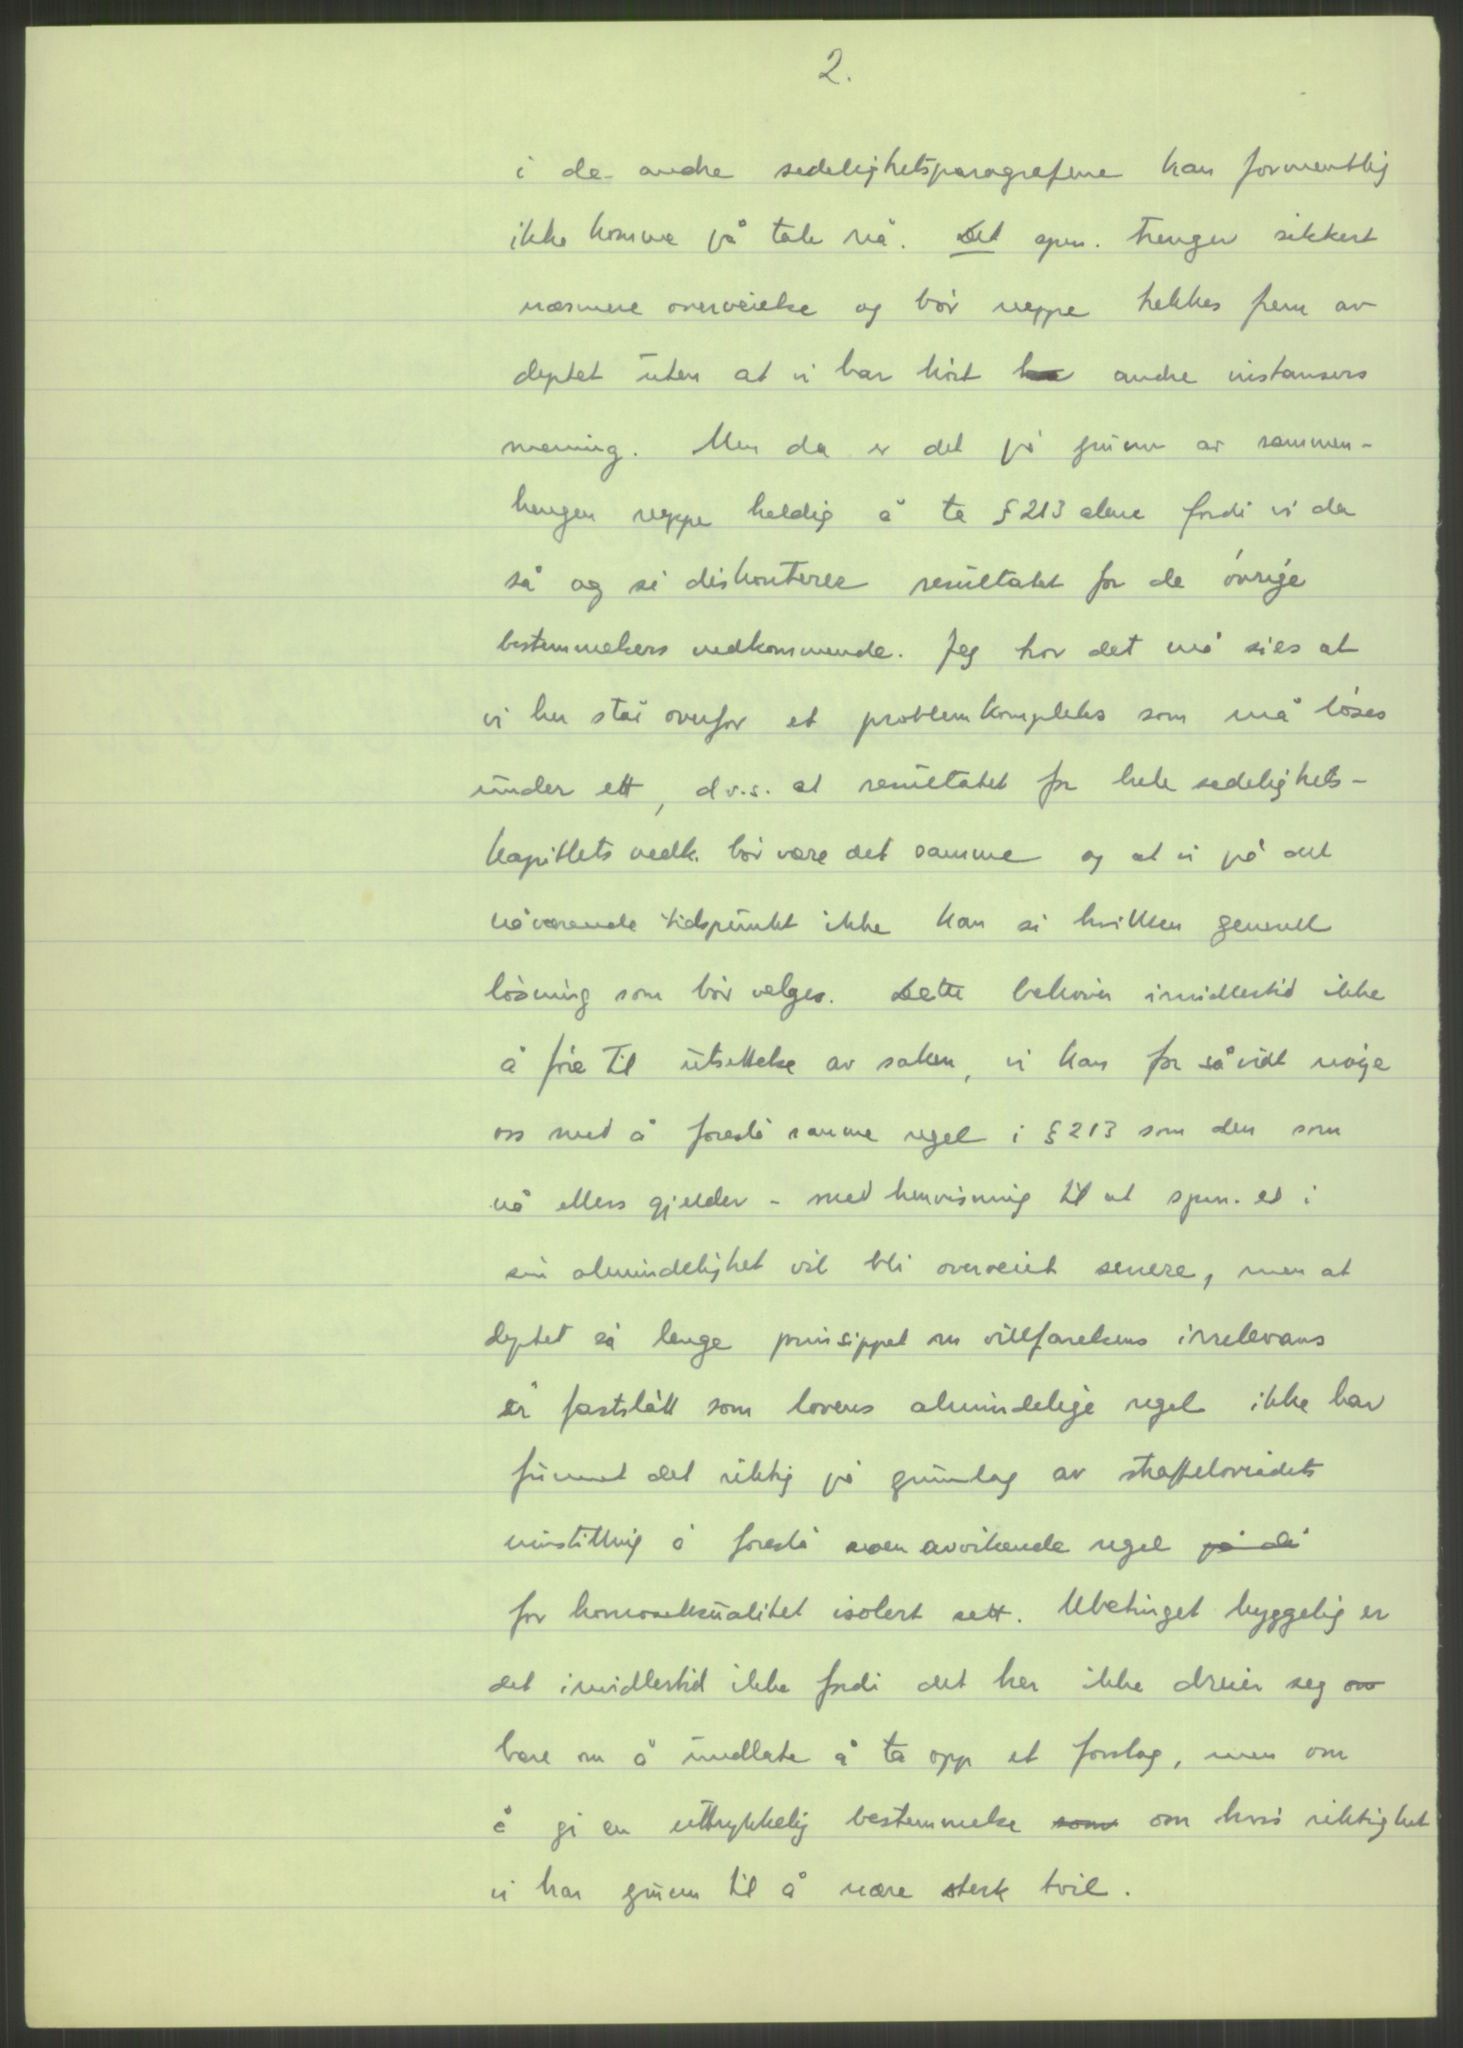 2.
i de andre sedelighetsparagrafene kan formentlig
ikke komme på tale nå. Det spm. trenger sikkert
nærmere overveielse og bør neppe trekkes frem av
deptet uten at vi har hørt andre instansers
mening. Men da er det på grunn av sammen-
hengen neppe heldig å ta § 213 alene fordi vi da
så og si diskonterer resultatet for de øvrige
bestemmelsers vedkommende. Jeg tror det må sies at
vi her står overfor et problemkompleks som må løses
under ett, d.v.s. at resultatet for hele sedelighets-
kapitlets vedk. bør være det samme og at vi på det
nåværende tidspunkt ikke kan si hvilken generell
løsning som bør velges. Dette behøver imidlertid ikke
å føre til utsettelse av saken, vi kan for så vidt nøye
oss med å foreslå samme regel i § 213 som den som
nå ellers gjelder - med henvisning til at spm. i
sin almindelighet vil bli overveiet senere, men at
deptet så lenge prinsippet om villfarelsens irrelevans
er fastslått som lovens almindelige regel ikke har
funnet det riktig på grunnlag av straffelovrådets
innstilling å foreslå noen avvikende regel på de
for homoseksualitet isolert sett. Ubetinget hyggelig er
det imidlertid ikke fordi det her ikke dreier seg om
bare om å unnlate å ta opp et forslag, men om
å gi en uttrykkelig bestemmelse som om hvis riktighet
vi har grunn til å nære sterk tvil.